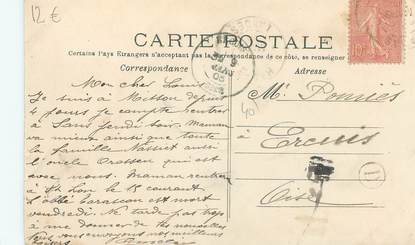 12 €
CARTE POSTALE
Certains Pays Etrangers n'acceptant pas la correspondance de ce côté, se renseigner
Correspondance
Adresse
Mon cher Louis
Je suis à Misson depuis
4 jours je compte rentrer
à jeudi soir. Maman
va mieux ainsi que toute
la famille Nasset aussi
l'oncle qui est
avec nous. Maman rentre
à St le 15 courant
l'abbé Tarascon est mort
vendredi. Ne tarde pas trop
à me donner de tes nouvelles
vous envoyons nos meilleurs
baisers
Mr. Pomiès
Ercuis
Oise
1